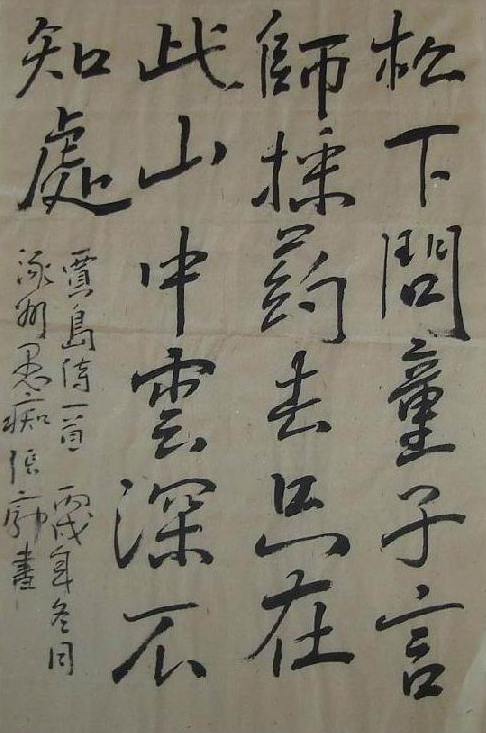 松下問童子言
師採药去只在
此山中雲深不
知處
賈島诗一首 丙戌年冬月
涿州愚痴張勃書